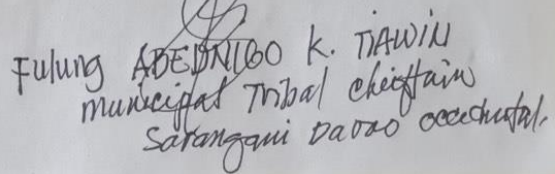 Fulung ABEDNIGO K. TIAWIN
Municipal Tribal chieftain
Sarangani Davao occidental.